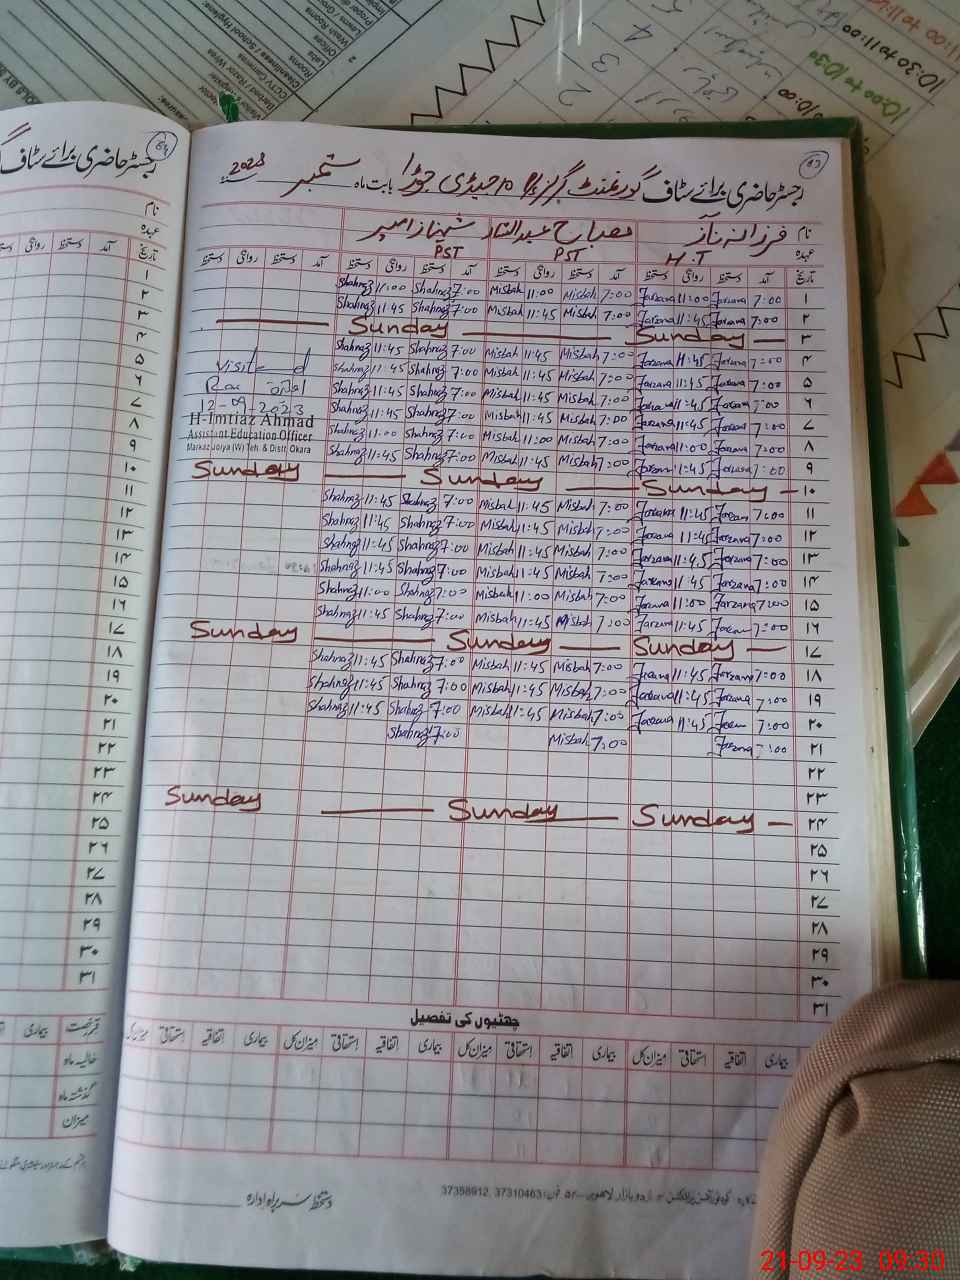 رجسٹر حاضری برائے سٹاف گورنمنٹ گرلز بابت ماہ ستمبر 2023
نام فرزانہ ناز مصباح عبدالستار شہناز امیر
عہدہ H.T PST PST
تاریخ آمد دستخط روانگی دستخط آمد دستخط روانگی دستخط آمد دستخط روانگی دستخط آمد دستخط روانگی دستخط
۱ 7:00 Farzana 11:00 Farzana 7:00 Misbah 11:00 Misbah 7:00 Shahnaz 11:00 Shahnaz
۲ 7:00 Farzana 11:45 Farzana 7:00 Misbah 11:45 Misbah 7:00 Shahnaz 11:45 Shahnaz
۳ Sunday Sunday
۴ 7:00 Farzana 11:45 Farzana 7:00 Misbah 11:45 Misbah 7:00 Shahnaz 11:45 Shahnaz
۵ 7:00 Farzana 11:45 Farzana 7:00 Misbah 11:45 Misbah 7:00 Shahnaz 11:45 Shahnaz
۶ 7:00 Farzana 11:45 Farzana 7:00 Misbah 11:45 Misbah 7:00 Shahnaz 11:45 Shahnaz
۷ 7:00 Farzana 11:45 Farzana 7:00 Misbah 11:45 Misbah 7:00 Shahnaz 11:45 Shahnaz
۸ 7:00 Farzana 11:00 Farzana 7:00 Misbah 11:00 Misbah 7:00 Shahnaz 11:00 Shahnaz
۹ 7:00 Farzana 11:45 Farzana 7:00 Misbah 11:45 Misbah 7:00 Shahnaz 11:45 Shahnaz
Visited
12-09-2023
H-Imtiaz Ahmad
Assistant Education Officer
Markaz Jorya (W) Teh. & Distt Okara
۱۰ Sunday Sunday Sunday
۱۱ 7:00 Farzana 11:45 Farzana 7:00 Misbah 11:45 Misbah 7:00 Shahnaz 11:45 Shahnaz
۱۲ 7:00 Farzana 11:45 Farzana 7:00 Misbah 11:45 Misbah 7:00 Shahnaz 11:45 Shahnaz
۱۳ 7:00 Farzana 11:45 Farzana 7:00 Misbah 11:45 Misbah 7:00 Shahnaz 11:45 Shahnaz
۱۴ 7:00 Farzana 11:45 Farzana 7:00 Misbah 11:45 Misbah 7:00 Shahnaz 11:45 Shahnaz
۱۵ 7:00 Farzana 11:00 Farzana 7:00 Misbah 11:00 Misbah 7:00 Shahnaz 11:00 Shahnaz
۱۶ 7:00 Farzana 11:45 Farzana 7:00 Misbah 11:45 Misbah 7:00 Shahnaz 11:45 Shahnaz
۱۷ Sunday Sunday Sunday
۱۸ 7:00 Farzana 11:45 Farzana 7:00 Misbah 11:45 Misbah 7:00 Shahnaz 11:45 Shahnaz
۱۹ 7:00 Farzana 11:45 Farzana 7:00 Misbah 11:45 Misbah 7:00 Shahnaz 11:45 Shahnaz
۲۰ 7:00 Farzana 11:45 Farzana 7:00 Misbah 11:45 Misbah 7:00 Shahnaz 11:45 Shahnaz
۲۱ 7:00 Farzana 7:00 Misbah 7:00 Shahnaz
۲۲
۲۳
۲۴ Sunday Sunday Sunday
۲۵
۲۶
۲۷
۲۸
۲۹
۳۰
۳۱
چھٹیوں کی تفصیل
بیماری اتفاقیہ استحقاقی میزان کل بیماری اتفاقیہ استحقاقی میزان کل بیماری اتفاقیہ استحقاقی میزان کل بیماری اتفاقیہ استحقاقی
دستخط سربراہ ادارہ
37358912, 37310463
رجسٹر حاضری برائے سٹاف
نام
عہدہ
تاریخ آمد دستخط روانگی
۱
۲
۳
۴
۵
۶
۷
۸
۹
۱۰
۱۱
۱۲
۱۳
۱۴
۱۵
۱۶
۱۷
۱۸
۱۹
۲۰
۲۱
۲۲
۲۳
۲۴
۲۵
۲۶
۲۷
۲۸
۲۹
۳۰
۳۱
رخصت بیماری
حالیہ ماہ
گذشتہ ماہ
میزان
Offices
Labs
Rooms
Cleanliness / School Hygiene:
CCTV Cameras
Barbed / Razor Wires
2
3
4
10:00
10:00 to 10:30
10:30 to 11:00
21-09-23 09:30